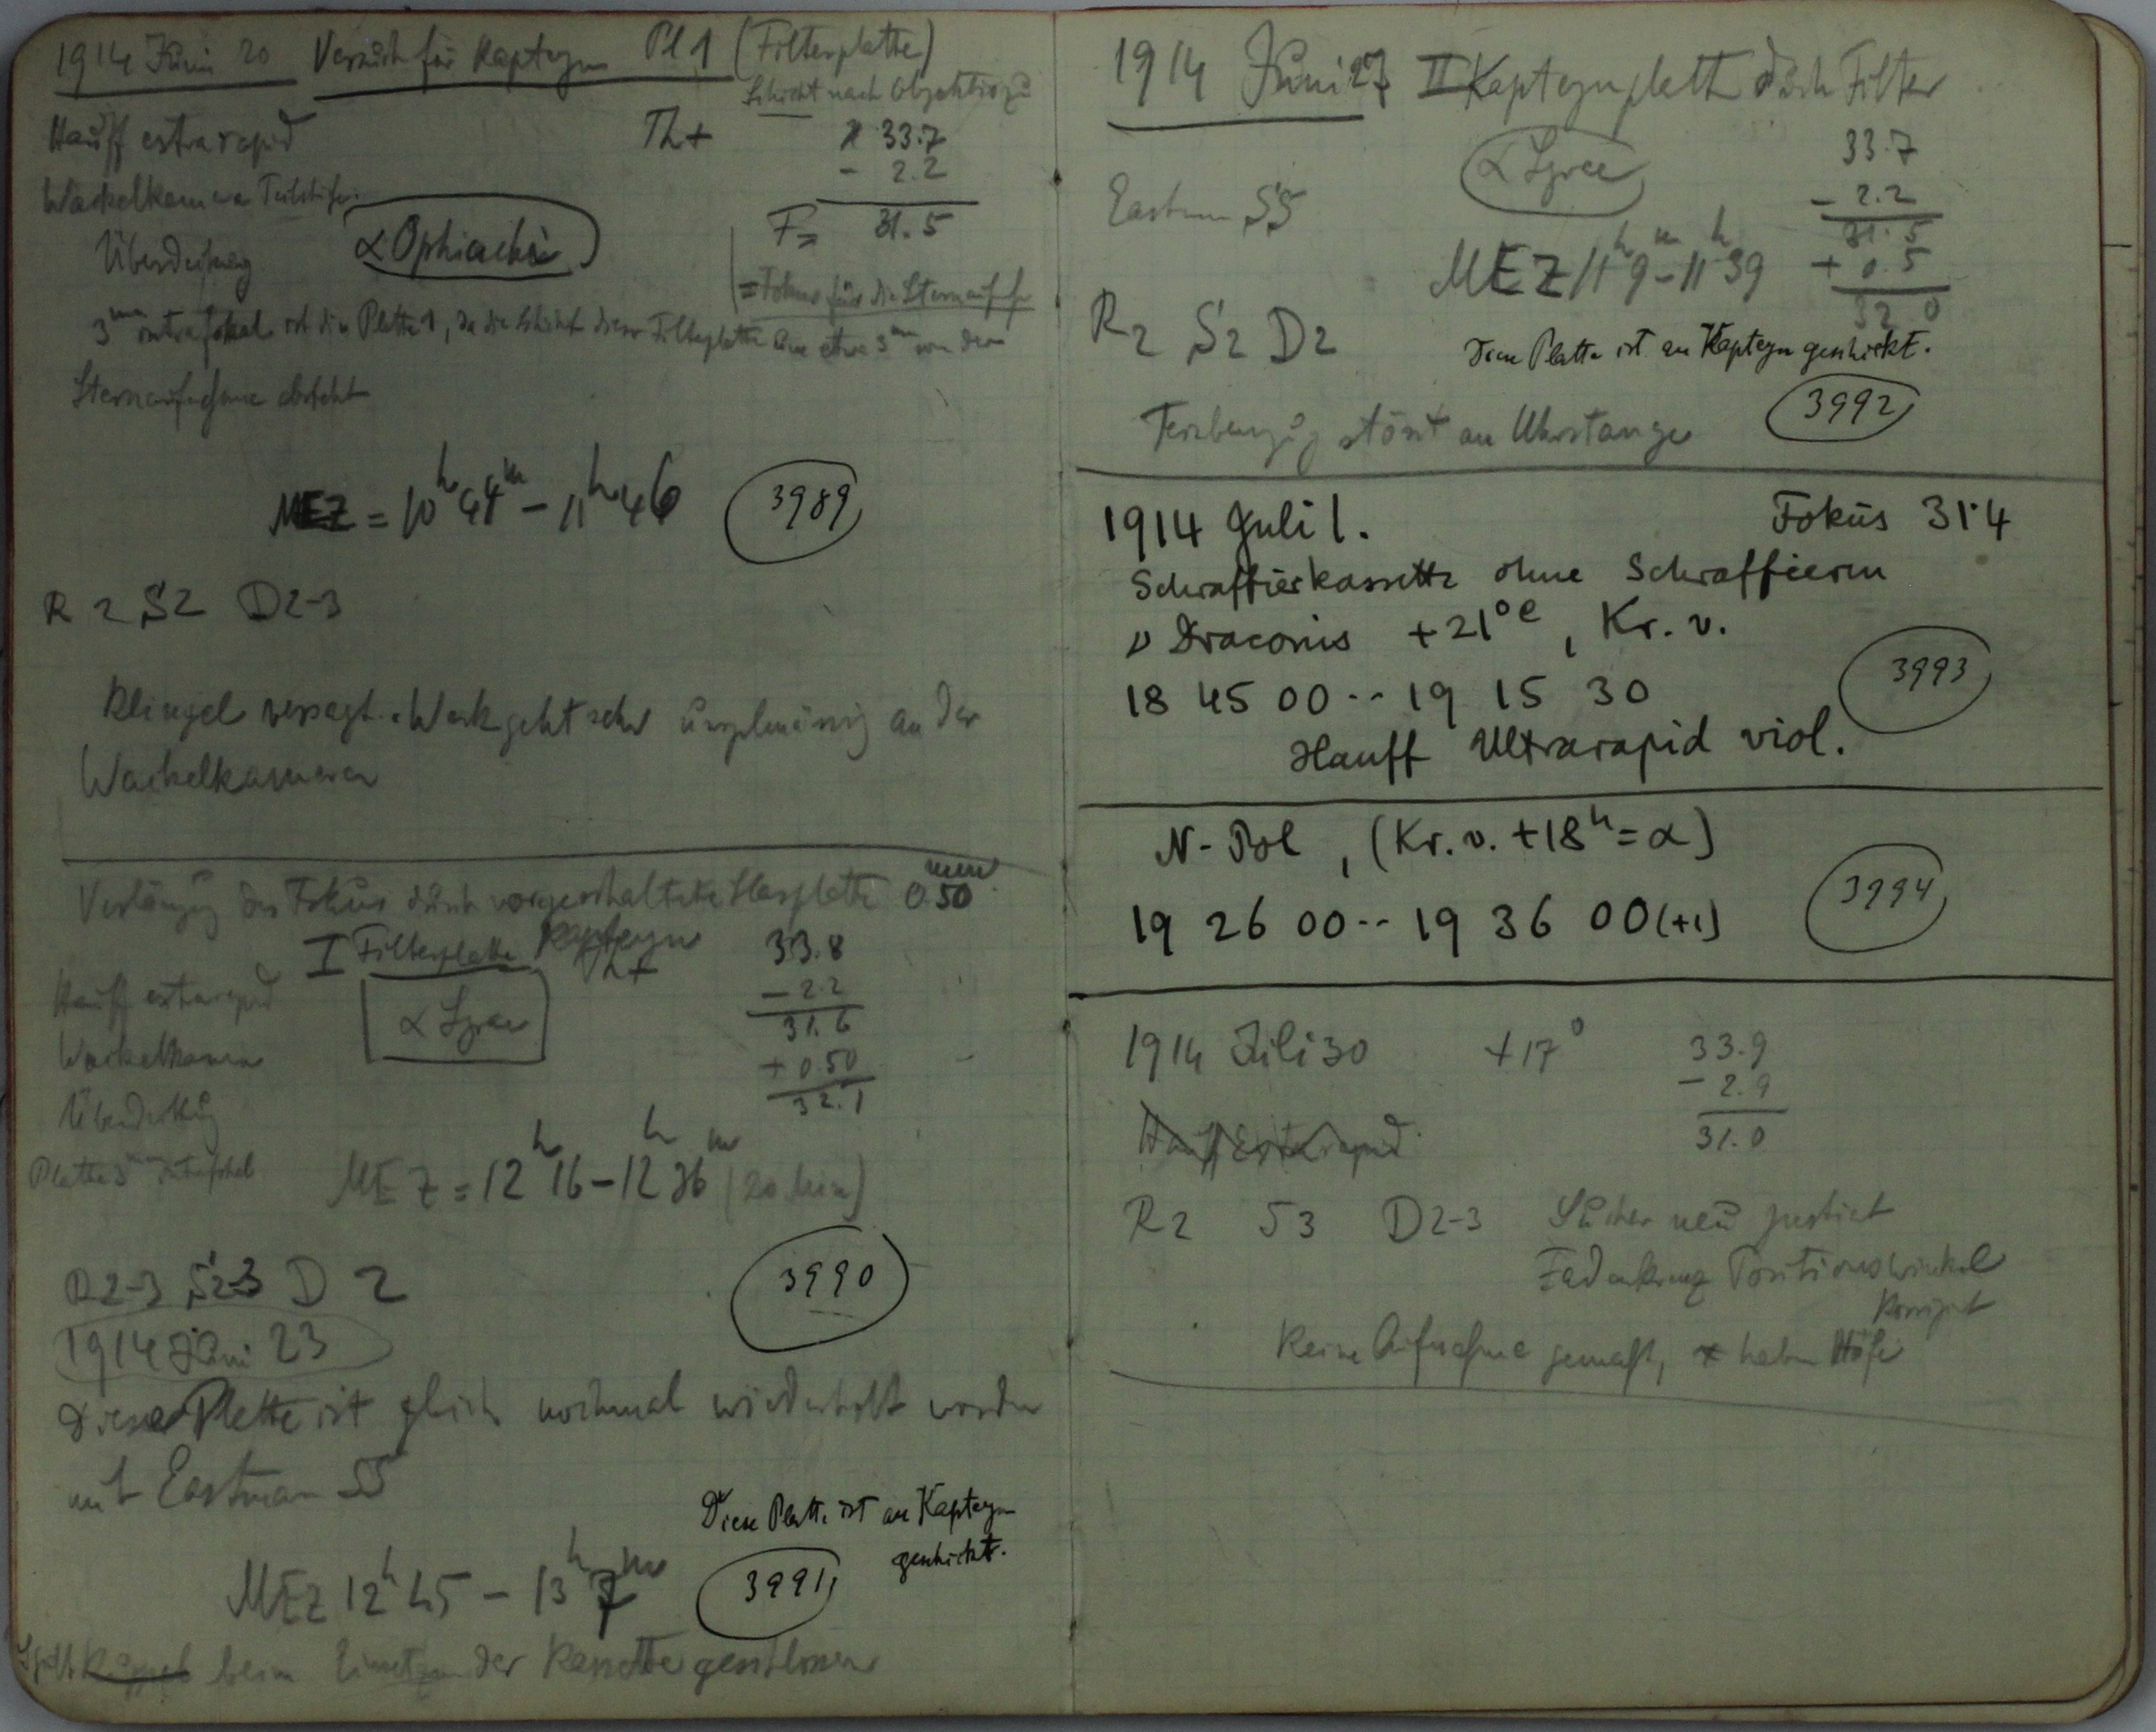 1914 Juni 20 Versuch für Kapteyn Pl 1 (Filterplatte)
Schicht nach Objektiv zu
Hauff extrarapid Th+ 33.7
Wackelkamera - 2.2
Überdeckung α Ophiuchi F= 31.5
= Fokus für die Sternaufn
3mm intrafokal ist die Platte 1, da die Schicht dieser Filterplatte um etwa 3mm von der
Sternaufnahme absteht
MEZ = 10h 44m - 11h 46 3989
R 2 S2 D2-3
Klingel versagt. Werk geht sehr an der
Wackelkamera
Verlängerung des Fokus durch vorgeschaltete Glasplatte 0.50 mm
I Filterplatte Kapteyn 33.8
Hauff extrarapid Th+ - 2.2
α Lyrae 31.6
Wackelkamera + 0.50
Überdeckung 32.1
Platte 3mm intrafokal MEZ = 12h 16 - 12h 36m (20 Min)
R2-3 S2-3 D 2 3990
1914 Juni 23
Diese Platte ist gleich nochmal wiederholt worden
mit Eastman SS
Diese Platte ist an Kapteyn
geschickt.
MEZ 12h 45 - 13h 7m 3991
beim Einsetzen der Kassette geschlossen
1914 Juni 27 II Kapteynplatte durch Filter
α Lyrae 33.7
Eastman SS - 2.2
31.5
MEZ 11h 9m - 11h 39 + 0.5
32 0
R2 S2 D2
Diese Platte ist an Kapteyn geschickt.
3992
stösst an Uhrstange
1914 Juli 1. Fokus 31.4
Schraffierkassette ohne Schraffieren
ν Draconis +21°C, Kr. v.
18 45 00 -- 19 15 30 3993
Hauff Ultrarapid viol.
N-Pol, (Kr. v. +18h = α)
19 26 00 -- 19 36 00 (+1) 3994
1914 Juli 30 +17° 33.9
- 2.9
Hauff Extrarapid 31.0
R2 S3 D2-3 Sucher neu justiert
Fadenkreuz Positionswinkel
korrigiert
Keine Aufnahme gemacht, * haben Höfe